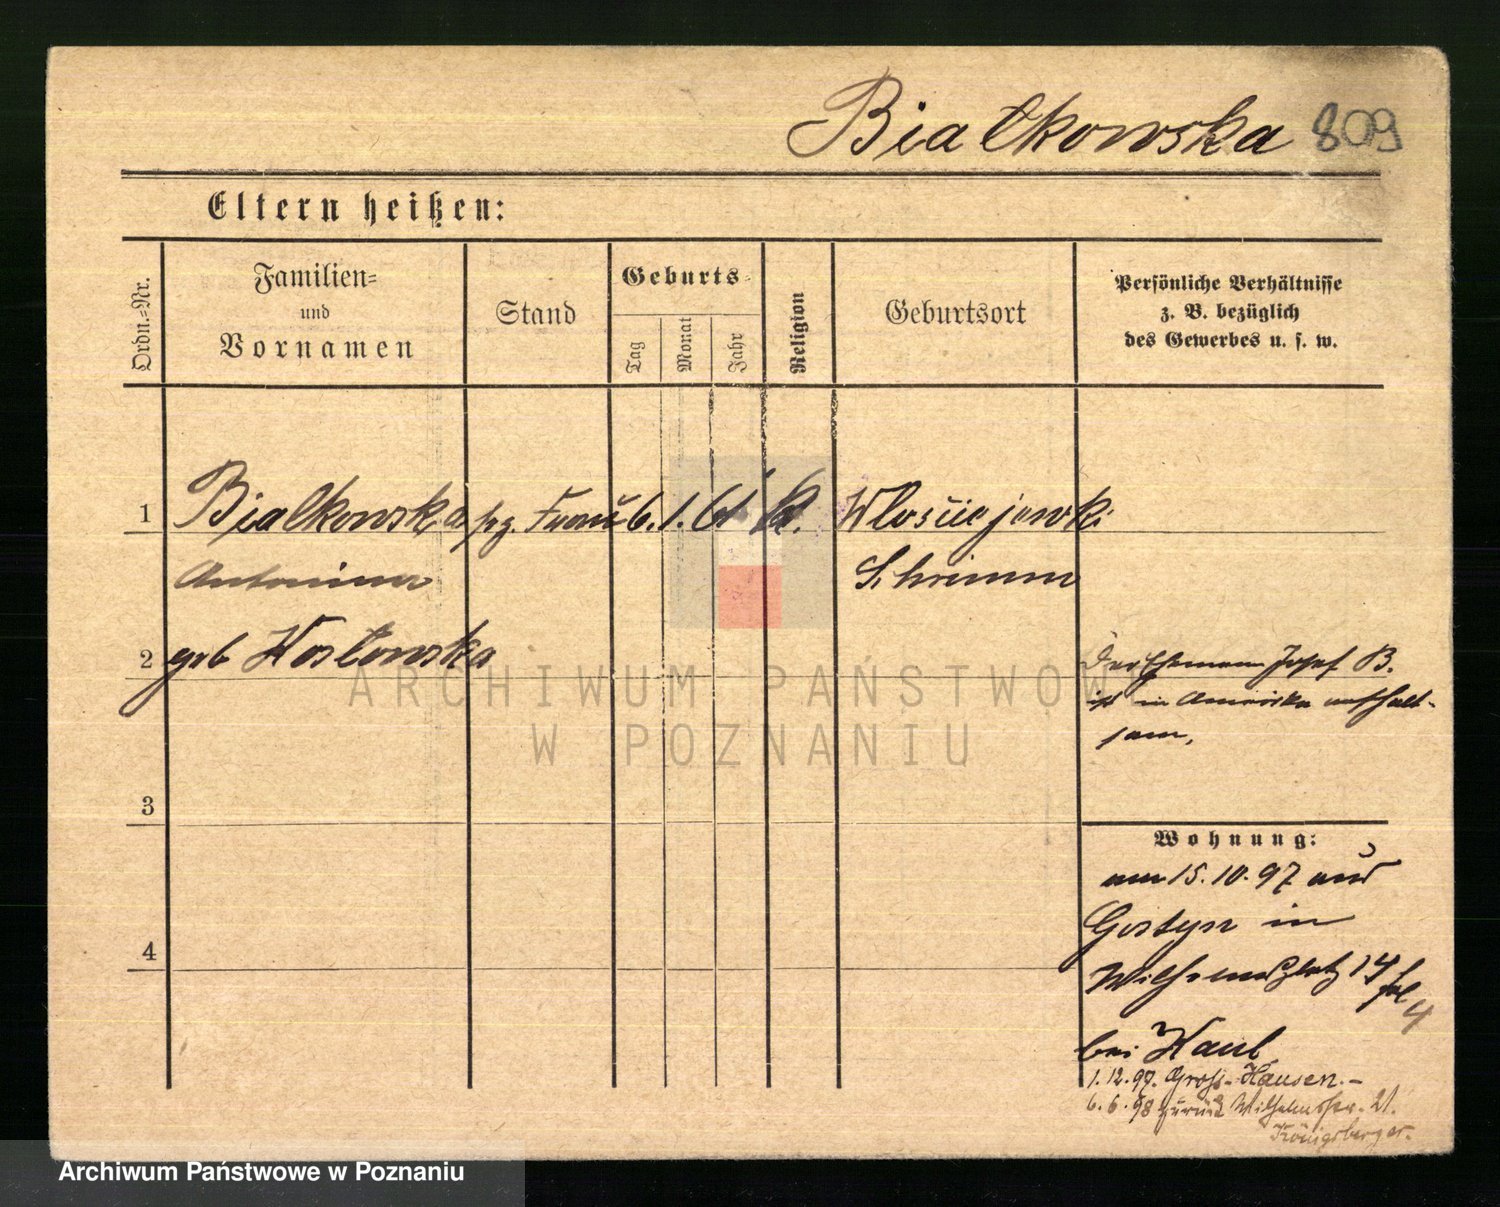 Białkowska 809
Eltern heißen:
Ordn.-Nr.
Familien-
und
Vornamen
Stand
Geburts-
Tag
Monat
Jahr
Religion
Geburtsort
Persönliche Verhältnisse
z. B. bezüglich
des Gewerbes u. s. w.
1 Białkowska sep. Frau 6. 1. 61 k. Włościejewki
Antonina Schrimm
2 geb Kosłowska
Der Ehemann Josef B.
ist in Amerika aufhalt-
sam.
3
Wohnung:
am 15.10.97 aus
Gostyn in
4
Wilhelmsplatz 14
bei Kaul
1.12.97. Groß-Hausen.-
6.6.98 zurück Wilhelmstr. 21.
Königsberger.
ARCHIWUM PAŃSTWOWE
W POZNANIU
Archiwum Państwowe w Poznaniu